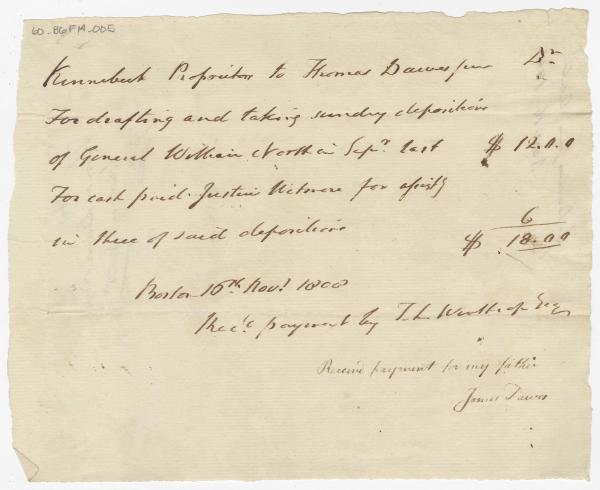 60-B6FM-OOE
Kennebeck Proprietors to Thomas Dawes jun Dr
For drafting and taking sundry depositions
of General William North in Sepr. last $ 12.00
For cash paid Justice Wetmore for assistg
in three of said depositions 6
$ 18.00
Boston 16th Novr 1808
Rec'd payment by T. L. Winthrop Esq
Receive payment for my father
James Dawes